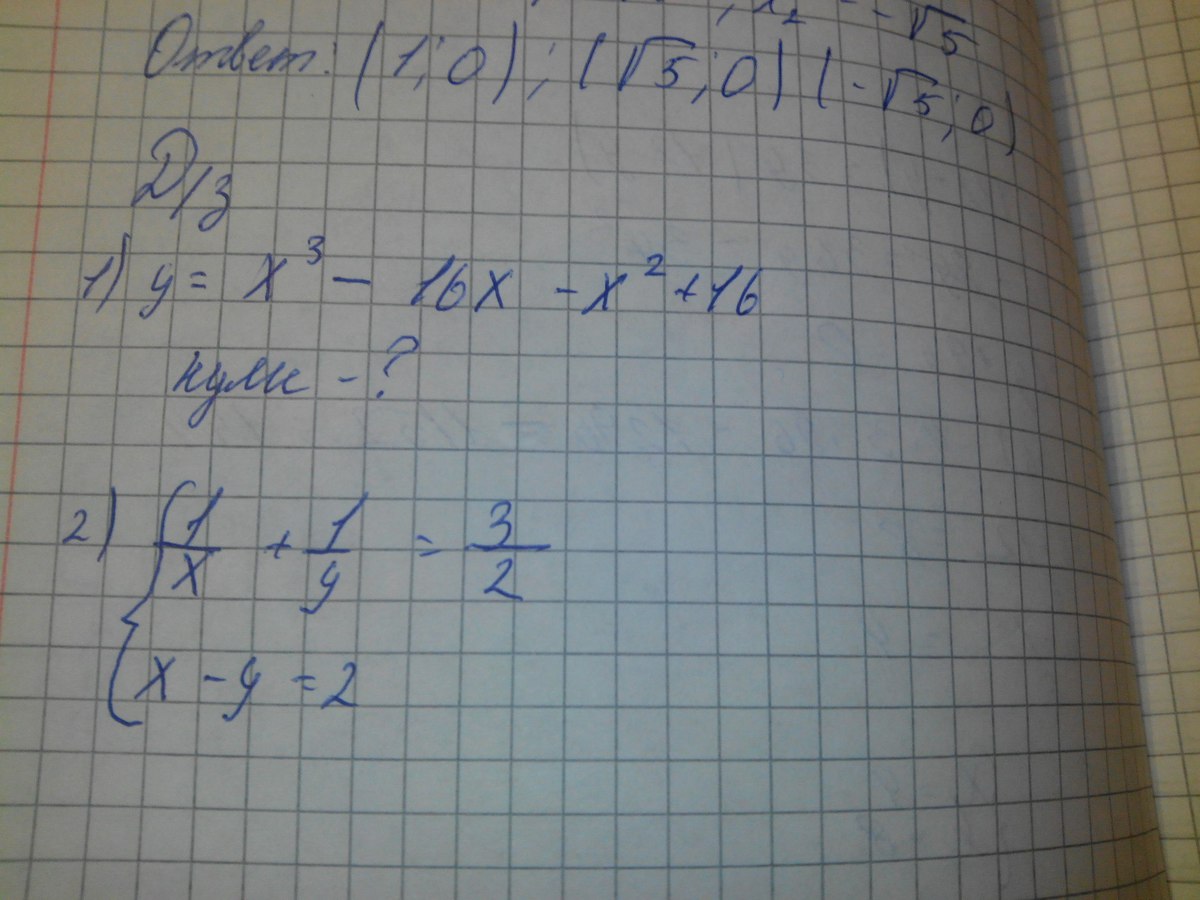 - √5
Ответ: (1; 0); (√5; 0) (-√5; 0)
Д/з
1) y = x³ - 16x - x² + 16
нули - ?
2) { 1/x + 1/y = 3/2
x - y = 2